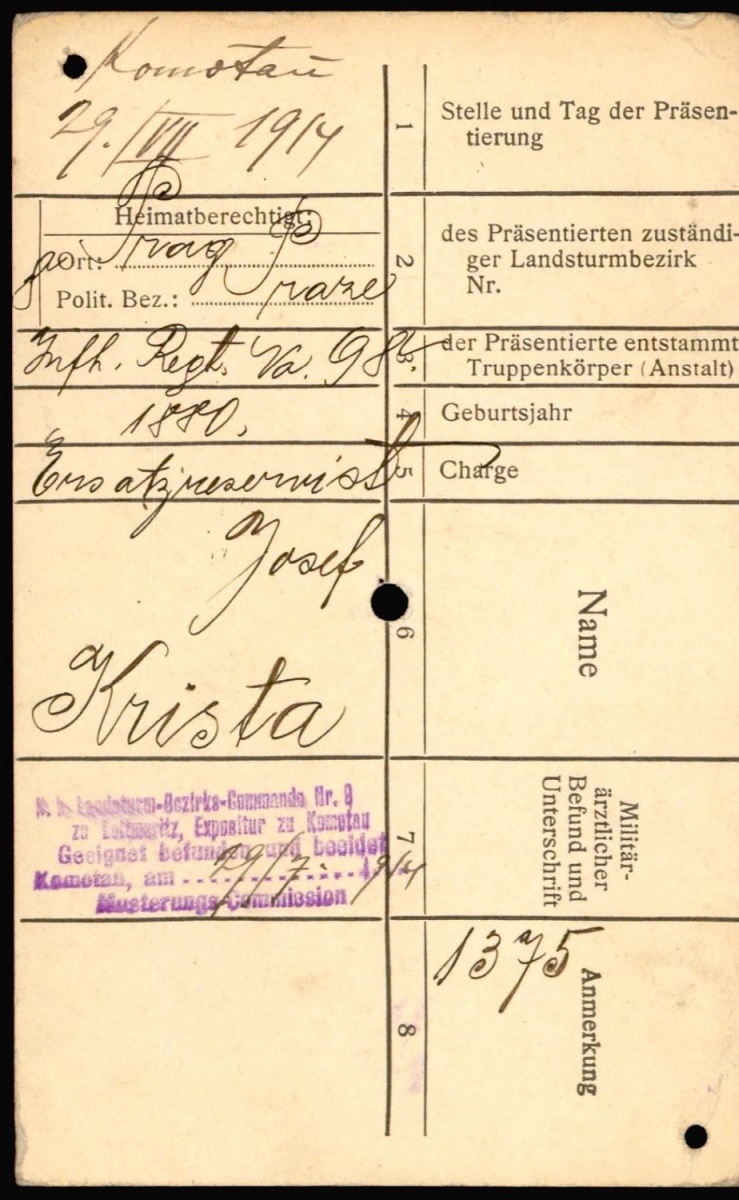 Komotau
29./VII 1914
1
Stelle und Tag der Präsen-
tierung
Heimatberechtigt:
Ort: Prag
Polit. Bez.:
2
des Präsentierten zuständi-
ger Landsturmbezirk
Nr.
Infh. Regt. No. 98.
3
der Präsentierte entstammt
Truppenkörper (Anstalt)
1880.
4
Geburtsjahr
Ersatzreservist
5
Charge
Josef
Krista
6
Name
k. k. Landsturm-Bezirks-Commando Nr. 9
zu Leitmeritz, Expositur zu Komotau
Geeignet befunden und beeidet
Komotau, am 29/7. 1914
Musterungs-Commission
7
Militär-
ärztlicher
Befund und
Unterschrift
1375
8
Anmerkung